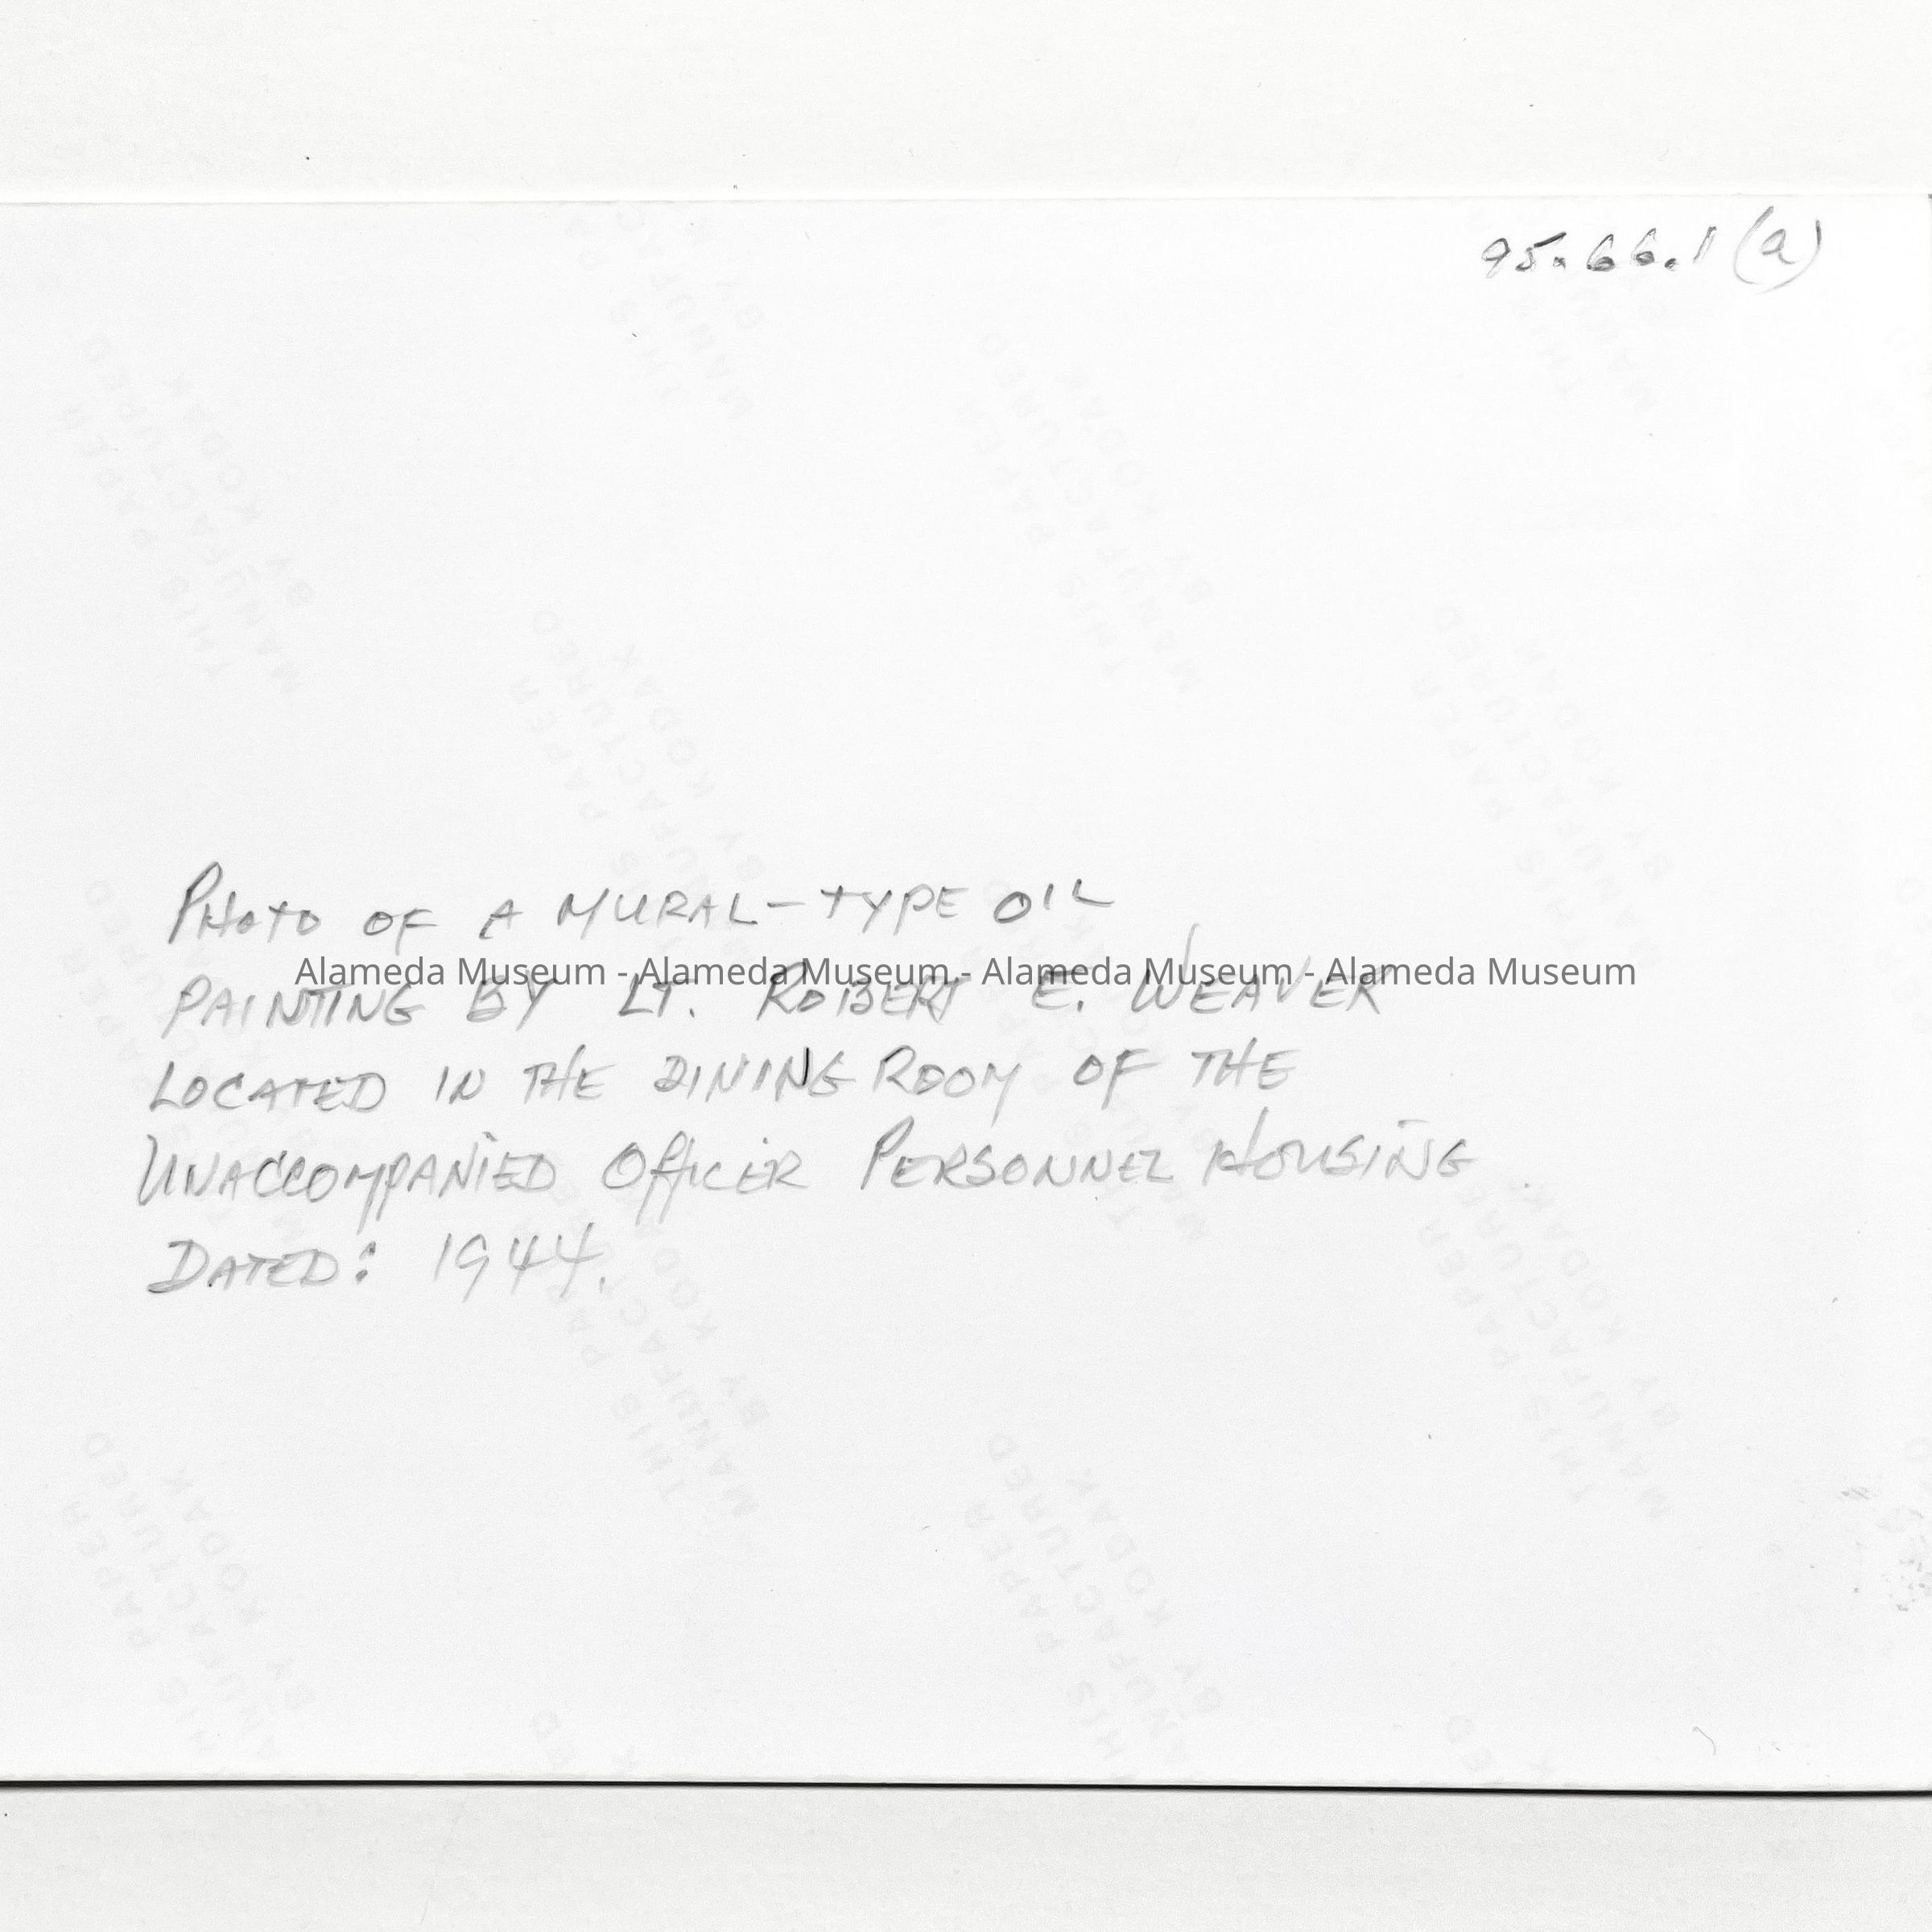 95.66.1 (a)
PHOTO OF A MURAL-TYPE OIL
Alameda Museum - Alameda Museum - Alameda Museum - Alameda Museum
PAINTING BY LT. ROBERT E. WEAVER
LOCATED IN THE DINING ROOM OF THE
UNACCOMPANIED OFFICER PERSONNEL HOUSING
DATED: 1944.
THIS PAPER
MANUFACTURED
BY KODAK